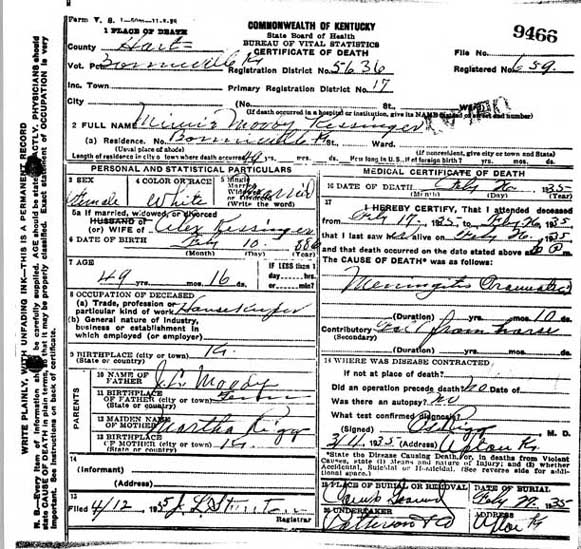 Form V. S.
COMMONWEALTH OF KENTUCKY
State Board of Health
BUREAU OF VITAL STATISTICS
CERTIFICATE OF DEATH
9466
1 PLACE OF DEATH
County Hart
File No.
Vot. Pct. Bonnieville Ky
Registration District No. 5636
Registered No. 659
Inc. Town
Primary Registration District No. 17
City (No. St. Ward)
(If death occurred in a hospital or institution, give its NAME instead of street and number)
2 FULL NAME Moody Kessinger
(a) Residence. No. Bonnieville Ky St. Ward.
(Usual place of abode) (If nonresident, give city or town and State)
Length of residence in city or town where death occurred 49 yrs. mos. ds. How long in U.S., if of foreign birth? yrs. mos. ds.
PERSONAL AND STATISTICAL PARTICULARS
3 SEX
Female
4 COLOR OR RACE
White
5 Single
Married
Widowed
or Divorced
(Write the word)
Married
5a If married, widowed, or divorced
HUSBAND OF
(or) WIFE OF Alex Kessinger
6 DATE OF BIRTH Feby 10
(Month) (Day) (Year)
7 AGE
49 yrs. mos. 16 ds.
IF LESS than 1
day, hrs.
or min?
8 OCCUPATION OF DECEASED
(a) Trade, profession or
particular kind of work Housekeeper
(b) General nature of industry,
business or establishment in
which employed (or employer)
9 BIRTHPLACE (city or town) Ky.
(State or country)
PARENTS
10 NAME OF
FATHER Moody
11 BIRTHPLACE
OF FATHER (city or town)
(State or country)
12 MAIDEN NAME
OF MOTHER Martha
13 BIRTHPLACE
OF MOTHER (city or town) Ky.
(State or country)
14
(Informant)
(Address)
15
Filed 4/12 1935
Registrar
MEDICAL CERTIFICATE OF DEATH
16 DATE OF DEATH Feby 26 1935
(Month) (Day) (Year)
17
I HEREBY CERTIFY, That I attended deceased
from Feby 17, 1935, to Feby 26, 1935
that I last saw alive on Feby 26, 1935
and that death occurred on the date stated above at m.
The CAUSE OF DEATH* was as follows:
Meningitis
(Duration) yrs. mos. 10 ds.
Contributory Fall from horse
(Secondary)
(Duration) yrs. mos. ds.
18 WHERE WAS DISEASE CONTRACTED
If not at place of death?
Did an operation precede death? no Date of
Was there an autopsy? no
What test confirmed diagnosis?
(Signed) M. D.
1935 (Address) Upton Ky
*State the Disease Causing Death, or, in deaths from Violent
Causes, state (1) Means and nature of Injury; and (2) whether
Accidental, Suicidal or Homicidal. (See reverse side for additional space.)
19 PLACE OF BURIAL OR REMOVAL
DATE OF BURIAL
1935
20 UNDERTAKER
ADDRESS
Upton Ky
WRITE PLAINLY, WITH UNFADING INK—THIS IS A PERMANENT RECORD
N. B.—Every item of information should be carefully supplied. AGE should be stated EXACTLY. PHYSICIANS should
state CAUSE OF DEATH in plain terms, so that it may be properly classified. Exact statement of OCCUPATION is very
important. See instructions on back of certificate.